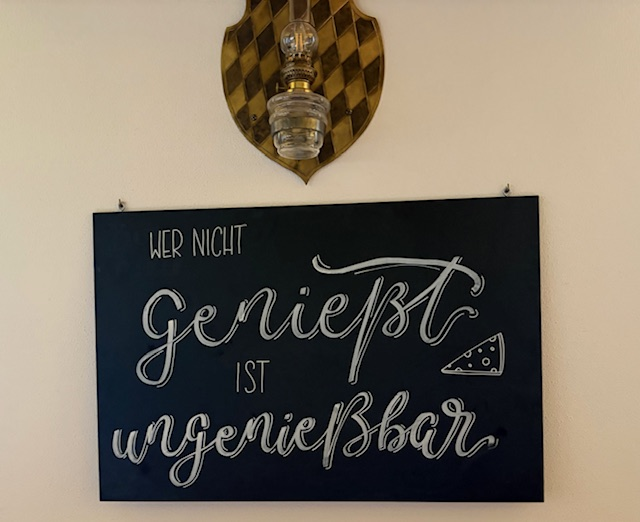 WER NICHT
genießt
IST
ungenießbar